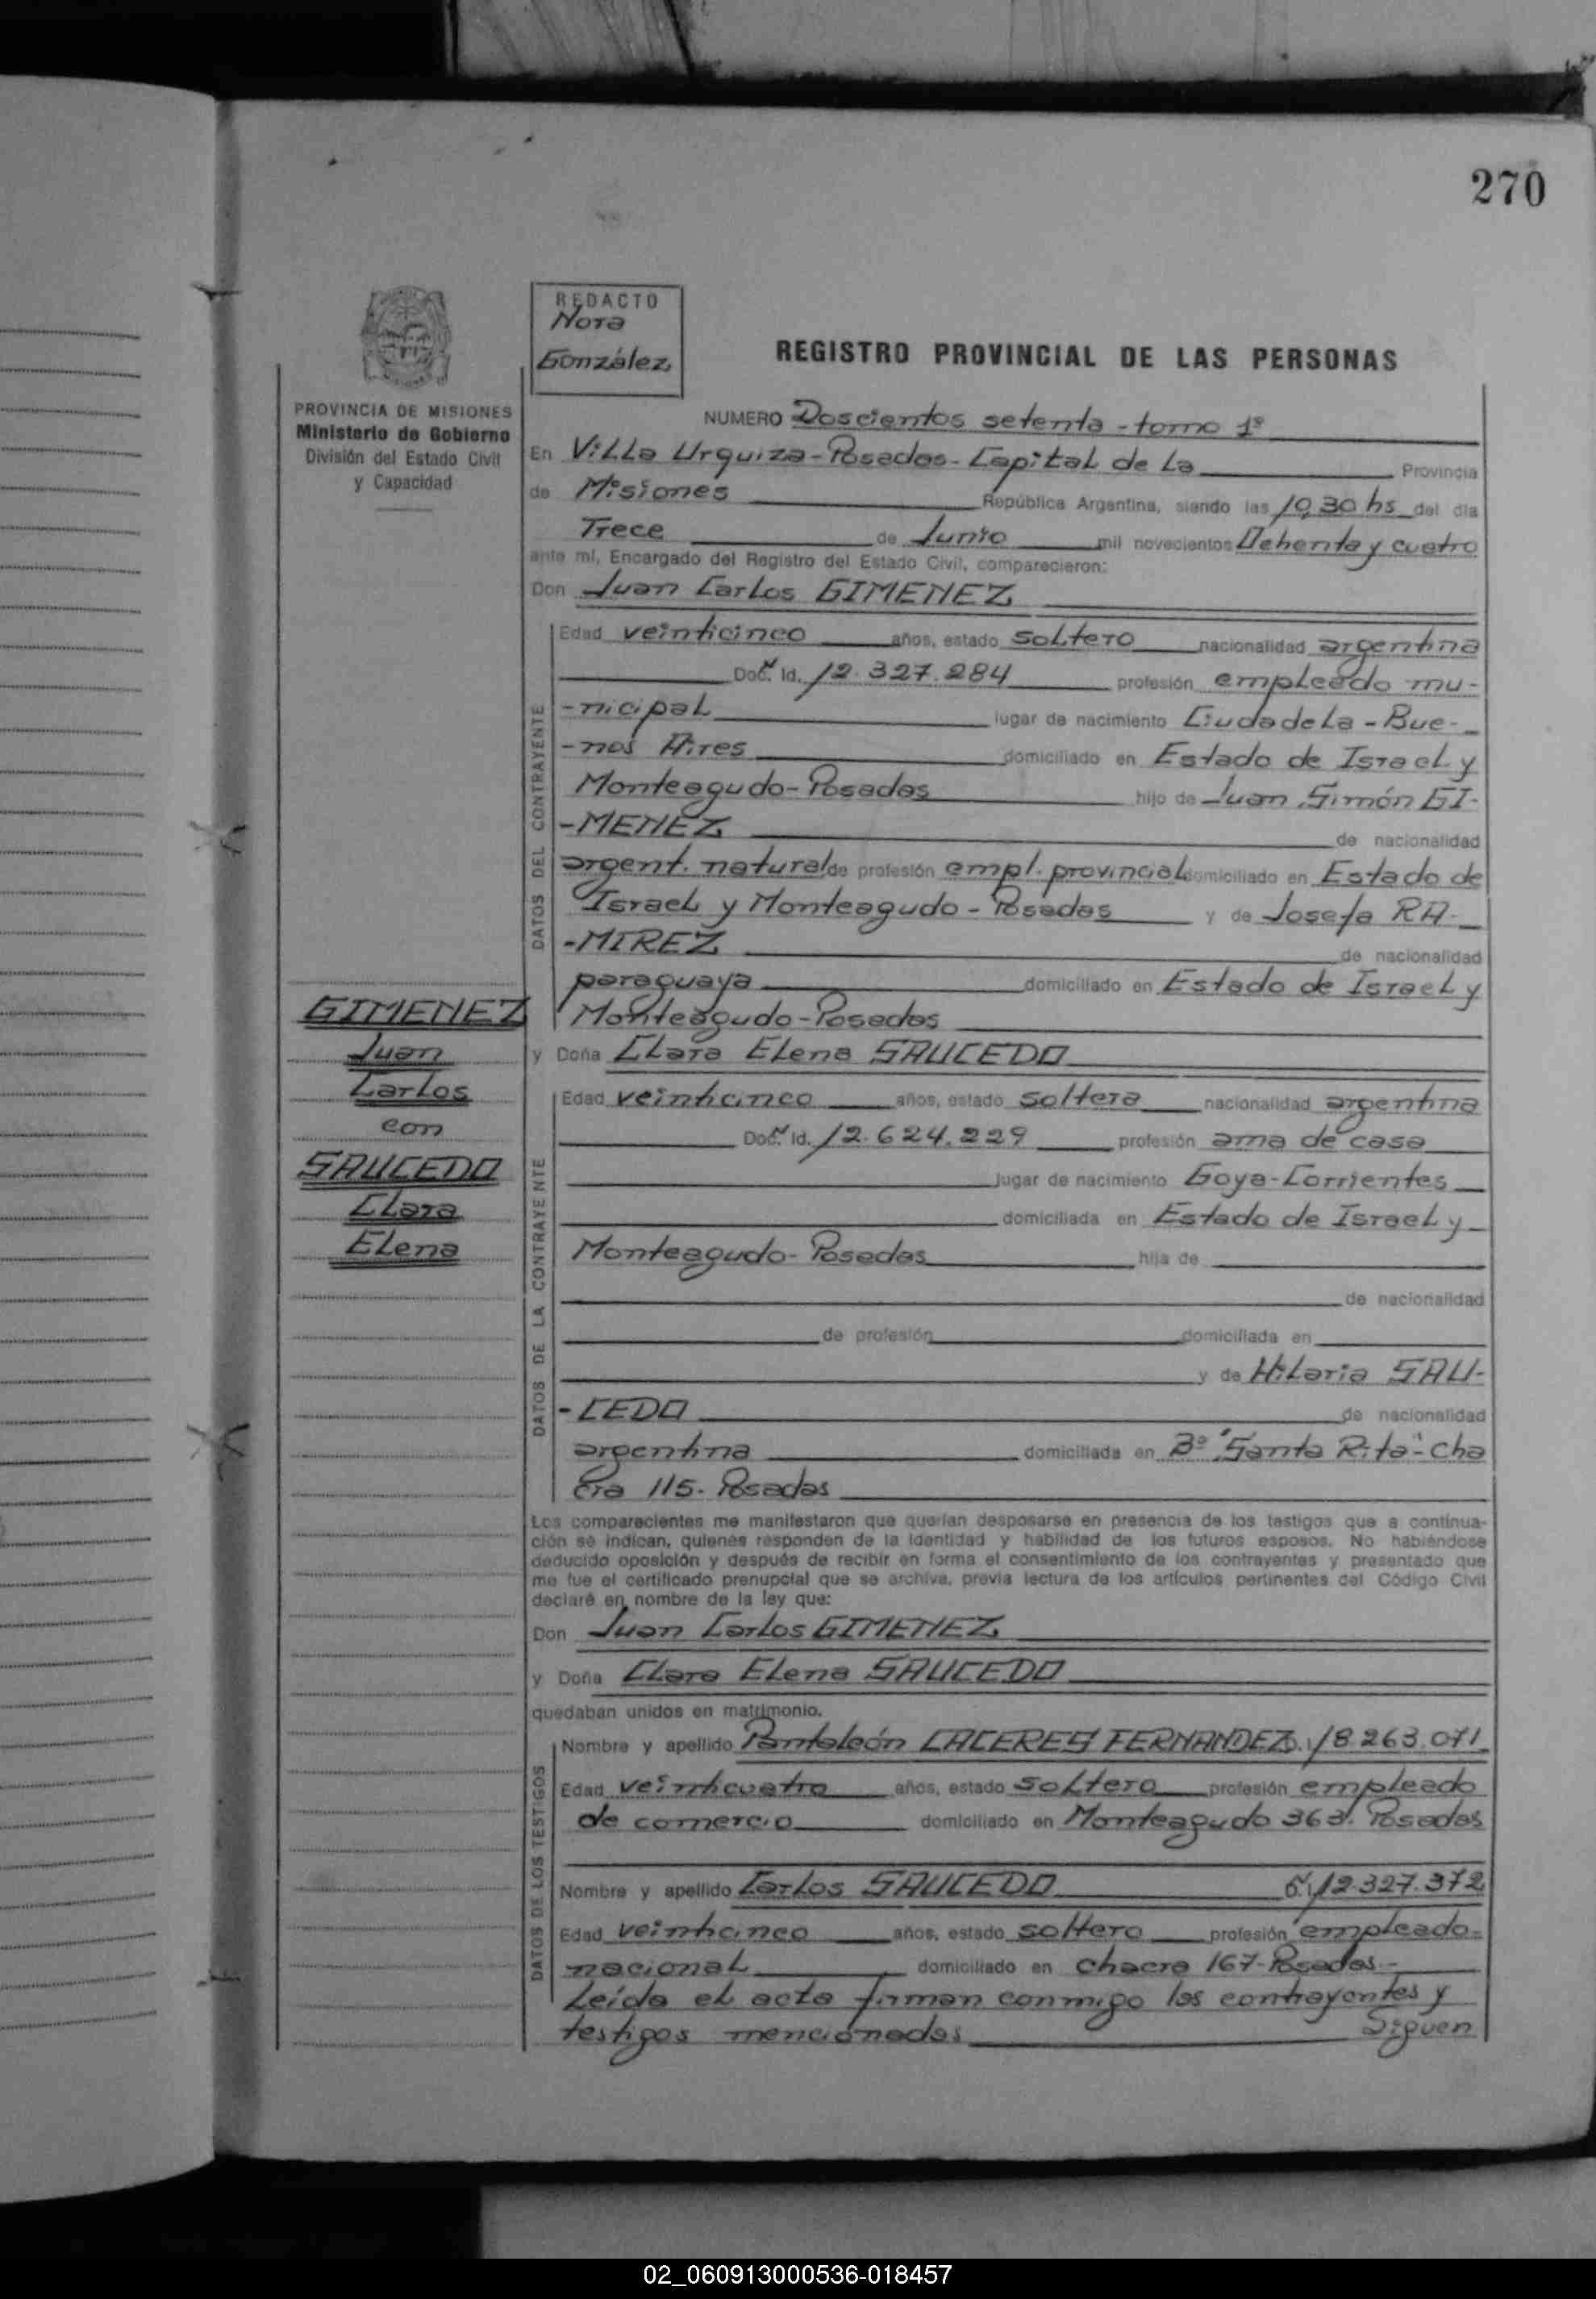 270
REDACTO
Nora
González
REGISTRO PROVINCIAL DE LAS PERSONAS
PROVINCIA DE MISIONES
Ministerio de Gobierno
División del Estado Civil
y Capacidad
NUMERO Doscientos setenta - tomo 1º
En Villa Urquiza - Posadas - Capital de la Provincia
de Misiones República Argentina, siendo las 10,30 hs del día
Trece de Junio mil novecientos Ochenta y cuatro
ante mí, Encargado del Registro del Estado Civil, comparecieron:
Don Juan Carlos GIMENEZ
DATOS DEL CONTRAYENTE
Edad veinticinco años, estado soltero nacionalidad argentina
Doc. Id. 12.327.284 profesión empleado mu-
-nicipal lugar de nacimiento Ciudadela - Bue-
-nos Aires domiciliado en Estado de Israel y
Monteagudo - Posadas hijo de Juan Simón GI-
-MENEZ de nacionalidad
argent. natural de profesión empl. provincial domiciliado en Estado de
Israel y Monteagudo - Posadas y de Josefa RA-
-MIREZ de nacionalidad
paraguaya domiciliado en Estado de Israel y
Monteagudo - Posadas
GIMENEZ
Juan
Carlos
con
SAUCEDO
Clara
Elena
y Doña Clara Elena SAUCEDO
DATOS DE LA CONTRAYENTE
Edad veinticinco años, estado soltera nacionalidad argentina
Doc. Id. 12.624.229 profesión ama de casa
lugar de nacimiento Goya - Corrientes
domiciliada en Estado de Israel y
Monteagudo - Posadas hija de
de nacionalidad
de profesión domiciliada en
y de Hilaria SAU-
-CEDO de nacionalidad
argentina domiciliada en Bº "Santa Rita" - cha
cra 115. Posadas
Los comparecientes me manifestaron que querían desposarse en presencia de los testigos que a continua-
ción se indican, quienes responden de la identidad y habilidad de los futuros esposos. No habiéndose
deducido oposición y después de recibir en forma el consentimiento de los contrayentes y presentado que
me fue el certificado prenupcial que se archiva, previa lectura de los artículos pertinentes del Código Civil
declaré en nombre de la ley que:
Don Juan Carlos GIMENEZ
y Doña Clara Elena SAUCEDO
quedaban unidos en matrimonio.
DATOS DE LOS TESTIGOS
Nombre y apellido Pantaleón CACERES FERNANDEZ 18.263.071
Edad veinticuatro años, estado soltero profesión empleado
de comercio domiciliado en Monteagudo 363. Posadas
Nombre y apellido Carlos SAUCEDO 12.327.372
Edad veinticinco años, estado soltero profesión empleado
nacional domiciliado en chacra 167 - Posadas -
Leída el acta firman conmigo los contrayentes y
testigos mencionados Siguen
02_060913000536-018457